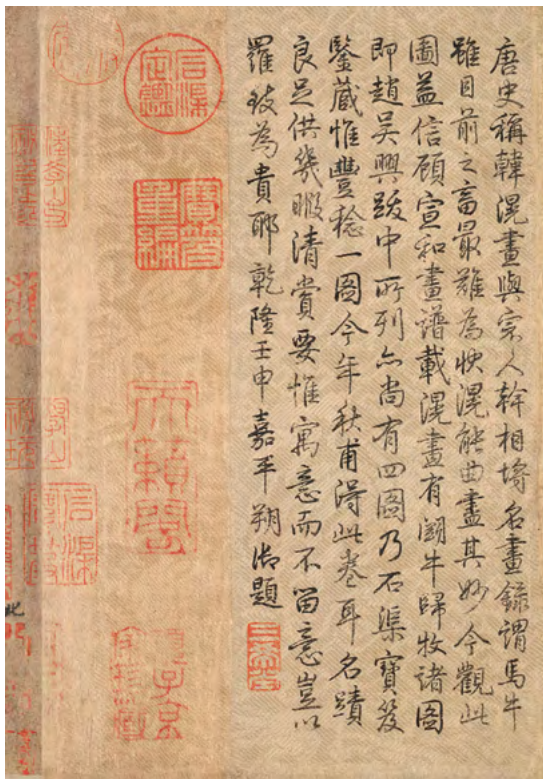 唐史稱韓滉畫與宗人幹相埒名畫錄謂馬牛
雖目前之畜最難為狀滉能曲盡其妙今觀此
圖益信顧宣和畫譜載滉畫有闘牛歸牧諸圖
即趙吳興跋中所列亦尚有四圖乃石渠寶笈
鑒藏惟豐稔一圖今年秋甫得此卷耳名蹟
良足供幾暇清賞要惟寓意而不留意豈以
羅致為貴耶乾隆壬申嘉平朔御題
三希堂
石渠定鑑
寶笈重編
天籟閣
項子京家珍藏
此